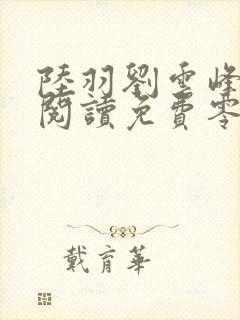 陸羽劉雲峰
閱讀免費零
戴育華